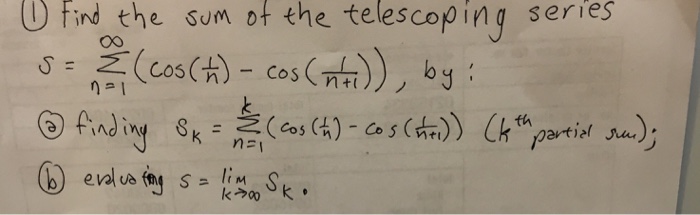 ① Find the sum of the telescoping series
S = ∞ Σ n=1 (cos(1/n) - cos(1/n+1)), by:
ⓐ finding S_K = k Σ n=1 (cos(1/n) - cos(1/n+1)) (k^th partial sum);
ⓑ evaluating S = lim k→∞ S_K.